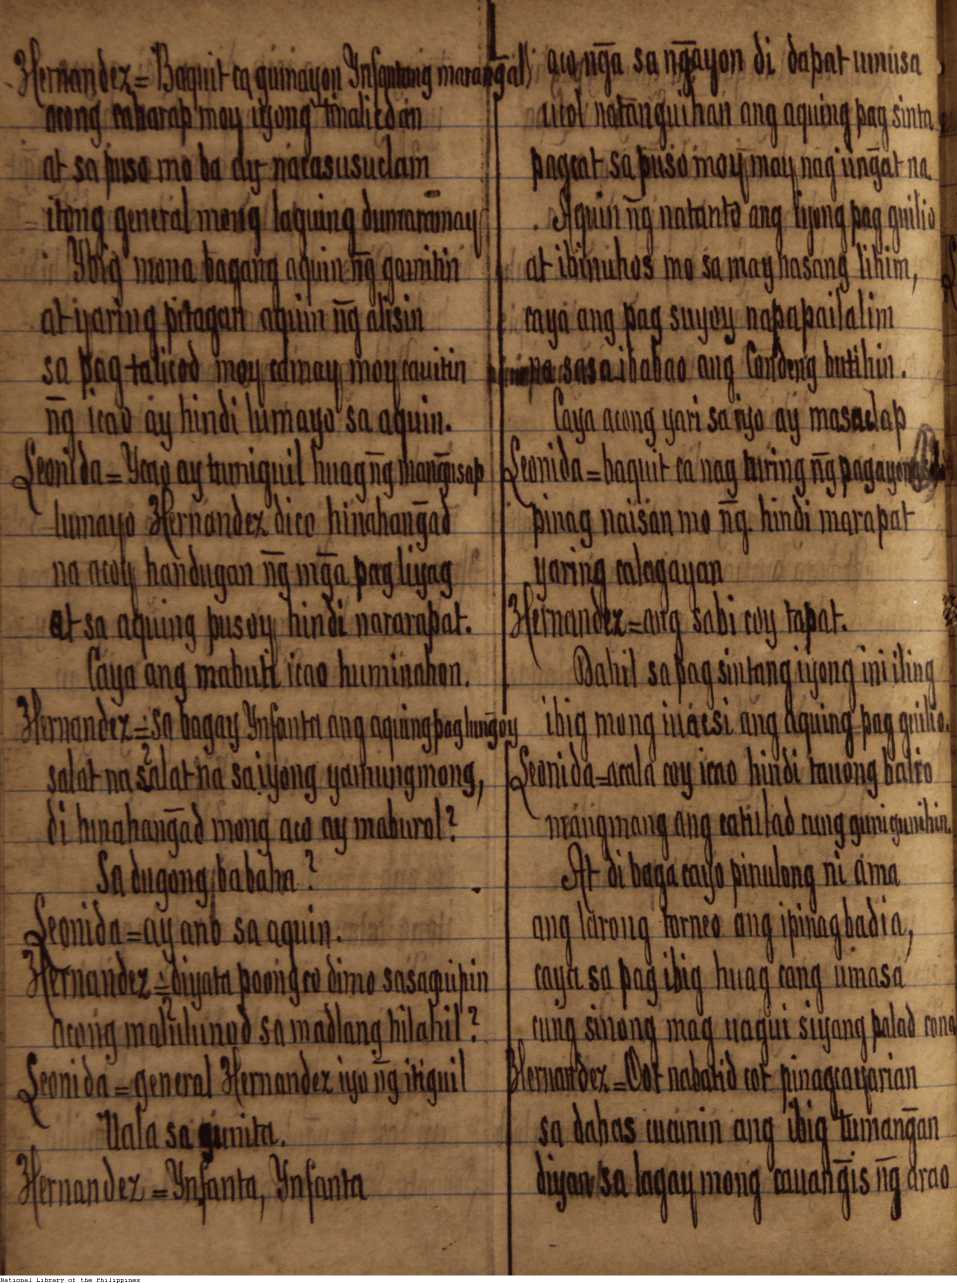 Hernandez = Baquit ca guinayon Ynfantang maran̄gal
acong caharap moy iyong tinalicdan
at sa puso mo ba ay nacasusuclam
itong general mong laguing dumaramay
Ybig mona bagang aquin n̄g gamitin
at yaring pitagan aquin n̄g alisin
sa pag-talicod moy camay moy cauitin
n̄g icao ay hindi lumayo sa aquin.
Leonida = Ycao ay tumiguil huag n̄g man̄gusap
lumayo Hernandez dico hinahan̄gad
na acoy handugan n̄g mg̃a pagliyag
at sa aquing pusoy hindi nararapat.
Caya ang mabuti icao huminahon.
Hernandez = sa bagay Ynfanta ang aquing paglun̄goy
salat na salat na sa iyong yamungmong,
di hinahan̄gad mong aco ay maburol?
Sa dugong babaha?
Leonida = ay ano sa aquin.
Hernandez = diyata poong co dimo sasaguipin
acong malulunod sa madlang hilahil?
Leonida = general Hernandez iyo n̄g itiguil
Uala sa gunita.
Hernandez = Ynfanta, Ynfanta
aco n̄ga sa n̄gayon di dapat umusa
utol natanguihan ang aquing pag sinta
pagcat sa puso moy may nag un̄gat na
Aquin n̄g natanto ang iyong pag guilio
at ibinuhos mo sa may hasang lihim,
caya ang pag suyoy napapailalim
na sasaibabao ang Condeng butihin.
Caya acong yari sa iyo ay masaclap
Leonida = baquit ca nag turing n̄g pagayong
pinag naisan mo n̄g hindi marapat
yaring calagayan
Hernandez = ang sabi coy tapat.
Dahil sa pag sintang iyong ini iling
ibig mong inacsi ang aquing pag guilio.
Leonida = acala coy icao hindi tauong balio
mangmang ang catulad cung guni gunihin.
At di baga cayo pinulong ni ama
ang larong torneo ang ipinagbadia,
caya sa pag ibig huag cang umasa
cung sinong mag uagui siyang palad cona
Hernandez = Oot nabatid cot pinagcayarian
sa dahas cucunin ang ibig tuman̄gan
diyan sa lagay mong cauan̄gis n̄g arao
National Library of the Philippines